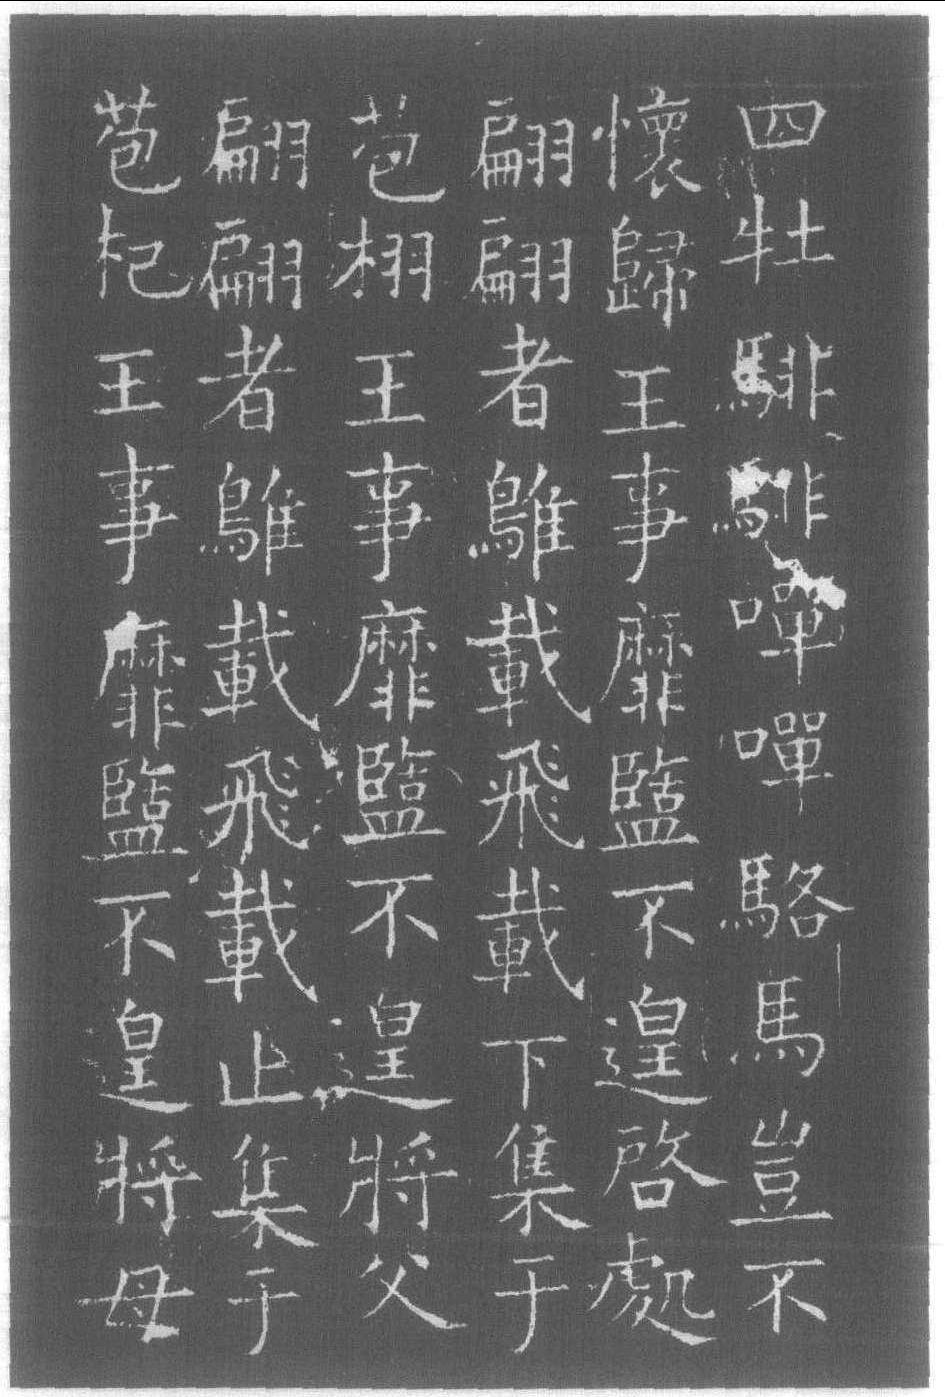 四牡騑騑嘽嘽駱馬豈不
懷歸王事靡盬不遑啓處
翩翩者鵻載飛載下集于
苞栩王事靡盬不遑將父
翩翩者鵻載飛載止集于
苞杞王事靡盬不遑將母